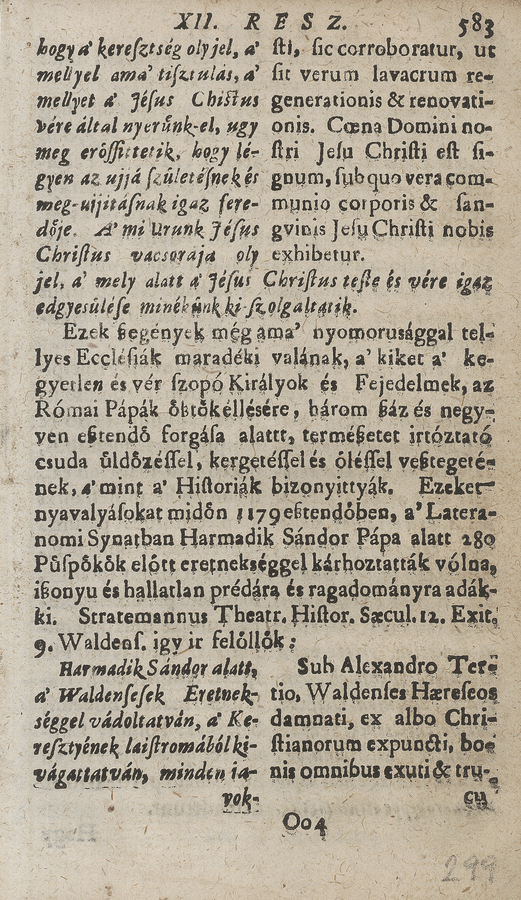 XII. RESZ. 583
hogy a' keresztség oly jel, a'
mellyel ama' tisztulás, a'
mellyet a' Jésus Chistus
vére által nyerünk-el, ugy
meg erőssittetik, hogy lé-
gyen az ujjá születésnek és
meg-ujjitásnak igaz fere-
dője. A' mi Urunk Jésus
Christus vacsorája oly
sti, sic corroboratur, ut
sit verum lavacrum re-
generationis & renovati-
onis. Cœna Domini no-
stri Jesu Christi est si-
gnum, sub quo vera com-
munio corporis & san-
gvinis Jesu Christi nobis
exhibetur.
jel, a' mely alatt a' Jésus Christus teste és vére igaz
edgyesülése minékünk ki-szolgaltatik.
Ezek ßegények még ama' nyomorusággal tel-
lyes Ecclésiák maradéki valának, a' kiket a' ke-
gyetlen és vér szopó Királyok és Fejedelmek, az
Római Pápák ôßtôkéllésére, három ßáz és negy-
ven eßtendô forgása alattt, terméßetet irtóztató
csuda ûldôzéssel, kergetéssel és ôléssel veßtegeté-
nek, a' mint a' Historiák bizonyittyák. Ezeket
nyavalyásokat midôn 1179 eßtendôben, a' Latera-
nomi Synatban Harmadik Sándor Pápa alatt 280
Pûspôkôk elôtt eretnekséggel kárhoztatták vólna,
ißonyu és hallatlan prédára és ragadományra adák-
ki. Stratemannus Theatr. Histor. Sæcul. 12. Exit.
9. Waldens. igy ir felôllôk:
Harmadik Sándor alatt,
a' Waldensesek Eretnek-
séggel vádoltatván, a' Ke-
resztyének laistromából ki-
vágattatván, minden ja-
vok-
Sub Alexandro Ter-
tio, Waldenses Hæreseos
damnati, ex albo Chri-
stianorum expuncti, bo-
nis omnibus exuti & tru-
cu
Oo4
299